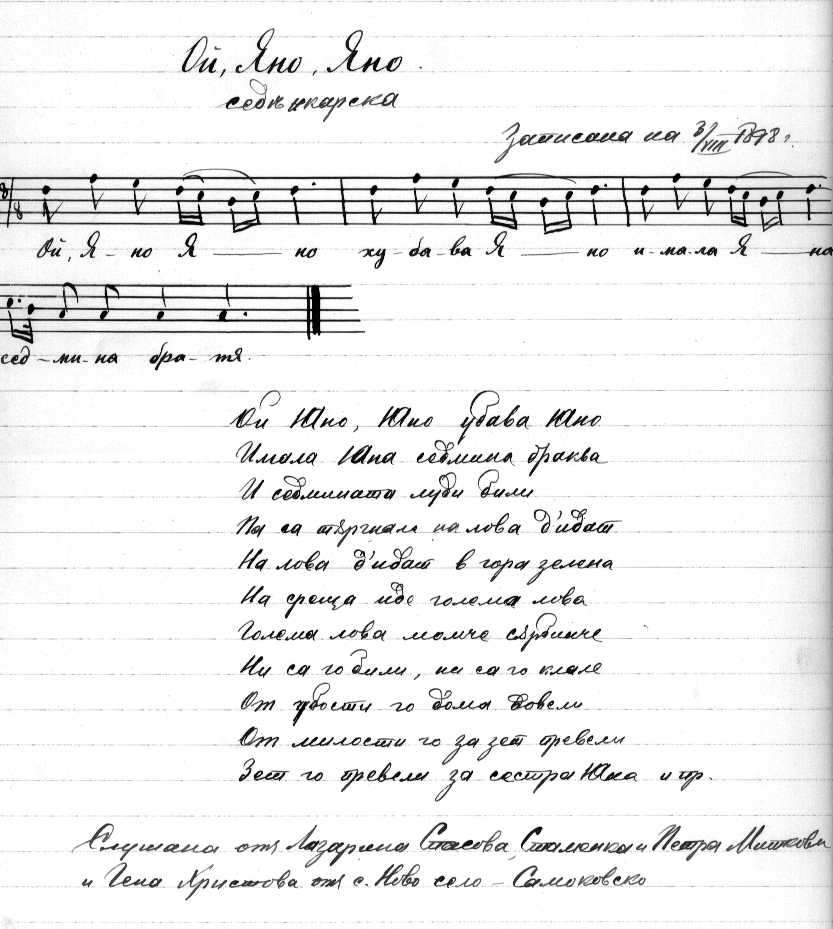 Ой, Яно, Яно.
седѣнкарска
Записана на 3/VIII 1898 г.
Ой, Я – но Я — но ху – ба – ва Я — но и – ма – ла Я — на
сед – ми – на бра – тя.
Ой Юно, Юно убава Юно
Имала Юна седмина браква
И седмината луди били
Па са търгнале на лова д'идат
На лова д'идат в гора зелена
На среща иде голема лова
Голема лова момче сърбинче
Ни са го били, ни са го клале
От убости го дома довели
От милости го за зет превели
Зет го превели за сестра Юна и пр.
Слушана отъ Лазарина Стасова, Сталенка и Петра Миткови
и Гена Христова отъ с. Ново село – Самоковско